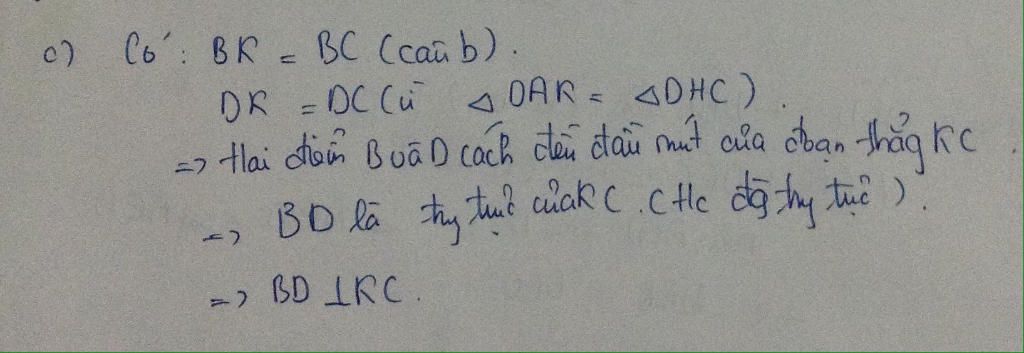 c) Có: BK = BC (câu b).
DK = DC (vì △DAK = △DHC).
=> Hai điểm B và D cách đều đầu mút của đoạn thẳng KC.
=> BD là trung trực của KC. (
=> BD ⊥ KC.